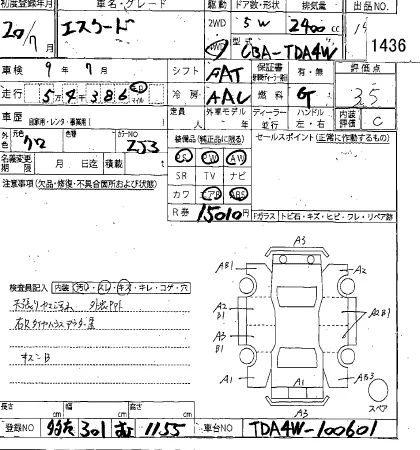 初度登録年月 車名・グレード 駆動 ドア数・形状 排気量 出品NO
20/7 エスクード 2WD 5W 2400cc
4WD 型式 CBA-TDA4W 1436
車検 9年7月 シフト FAT 有・無 評価点
走行 54386 km マイル 冷房 AAC 燃料 G 3.5
車歴 自家用・レンタ・事業用 定員 人 外車モデル 年 ディーラー 並行 ハンドル 左・右 内装評価 C
外色 元色 クロ 色替 カラーNO ZJ3 装備品(純正品に限る) セールスポイント(正常に作動するもの)
SR PW AW
名義変更期限 月 日迄 積載 SR TV ナビ
注意事項(欠品・修復・不具合箇所および状態) カワ エアB ABS
R券 15010円 Fガラス トビ石・キズ・ヒビ・ワレ・リペア跡
A3
AB1 A2
検査員記入 内装(汚れ・スレ・キズ・キレ・コゲ・穴)
A2 B1 A2B1
A3 B1
キズ=B
A1 AB3
A3 スペア
長さ cm 幅 cm 高さ cm
登録NO 301 む 1155 車台NO TDA4W-100601